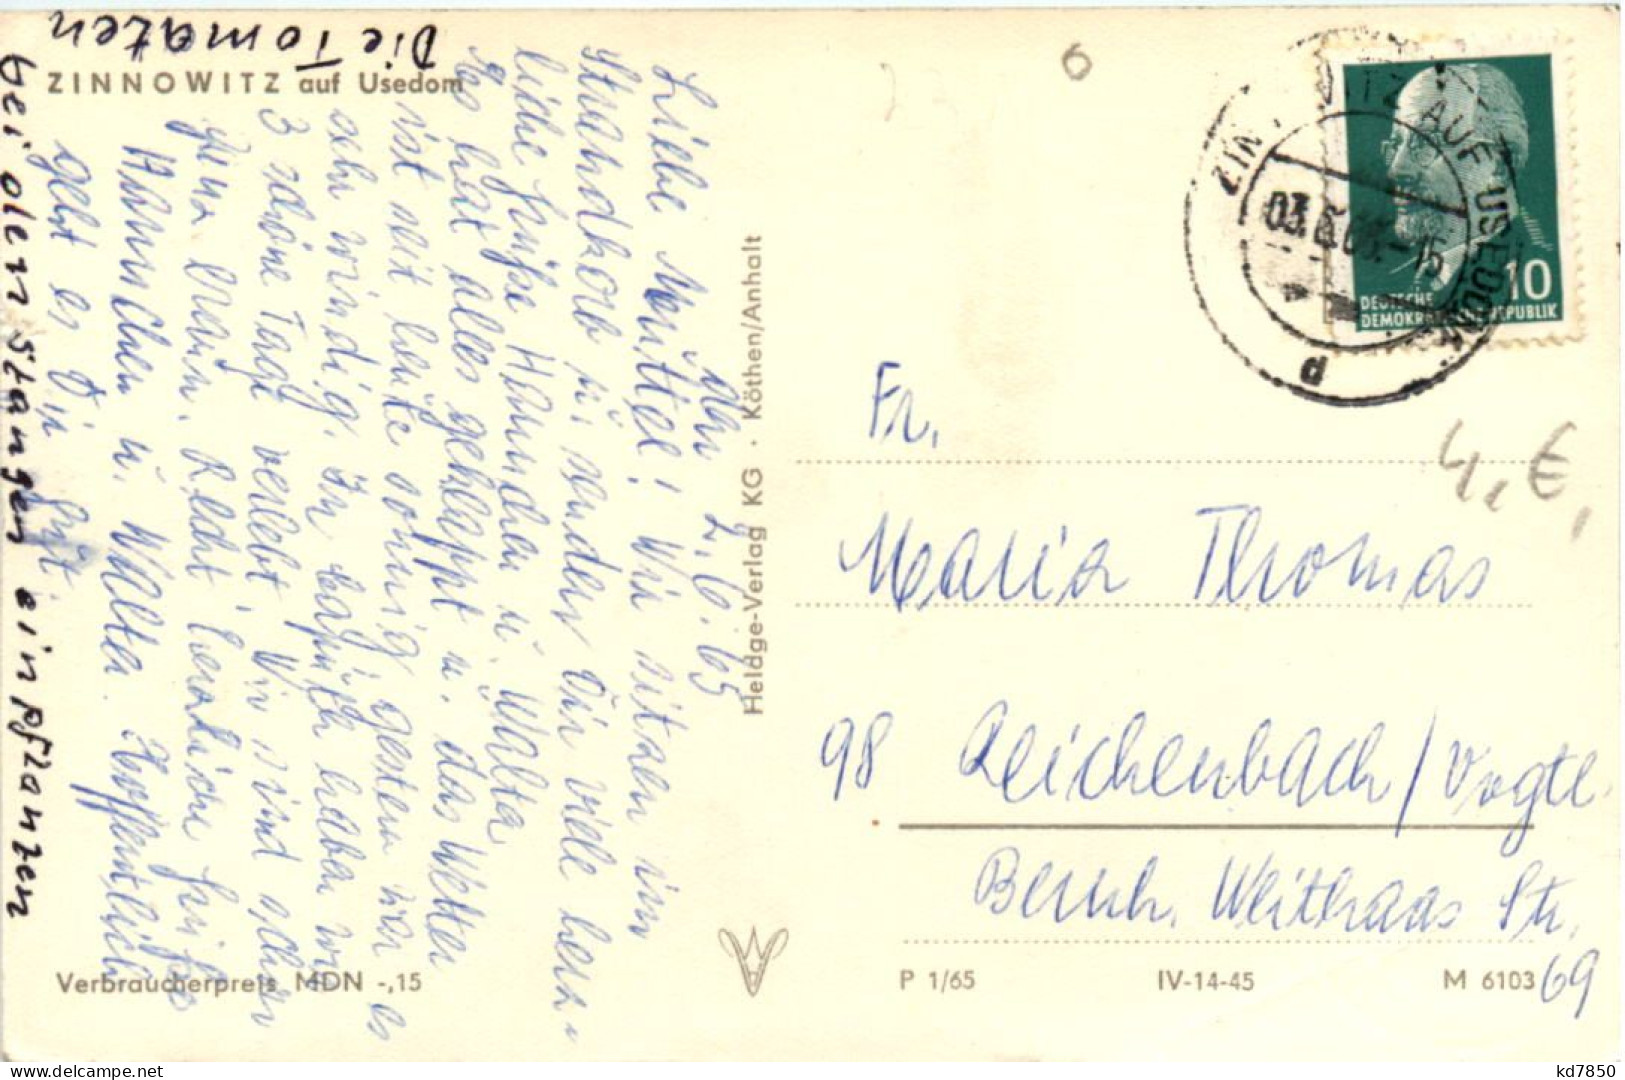 Die Tomaten
bei den Stangen einpflanzen
ZINNOWITZ auf Usedom
2.6.65
Liebe Muttel! Wir sitzen im
Strandkorb u. senden Dir viele herz-
liche Grüße Hannchen u. Walter
Es hat alles geklappt u. das Wetter
ist seit heute sonnig, gestern war es
sehr windig. In haben wir
3 schöne Tage verlebt. Wir sind schon
braun. Recht herzliche Grüße
Hannchen u. Walter. Hoffentlich
geht es Dir gut.
Verbraucherpreis MDN -,15
Heldge-Verlag KG · Köthen/Anhalt
6
ZINNOWITZ AUF USEDOM
-15
d
10
DEUTSCHE
DEMOKRATISCHE REPUBLIK
4,€,
Fr.
Maria Thomas
98 Reichenbach/Vogtl.
Bernh. Weithaas Str.
69
P 1/65 IV-14-45 M 6103
kd7850